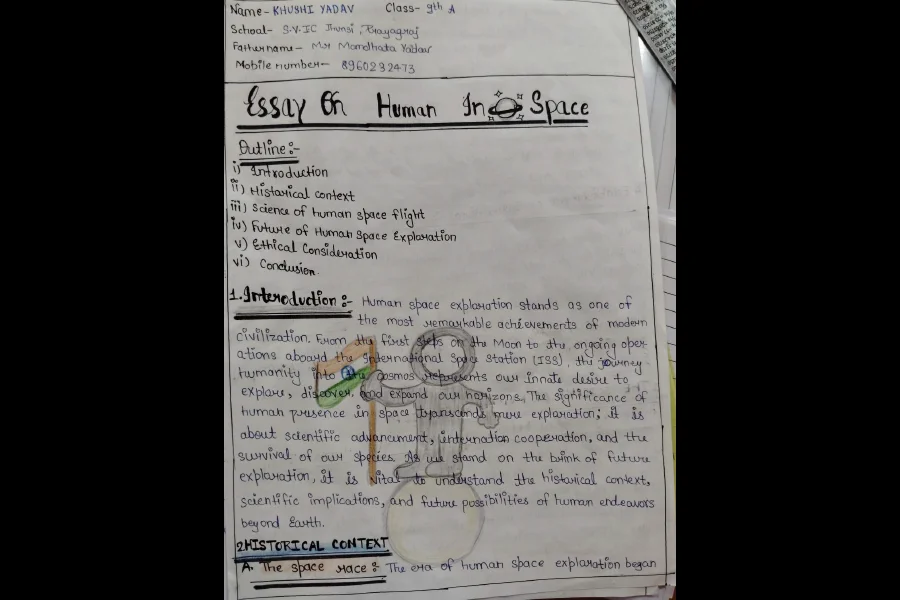 Name- KHUSHI YADAV Class- 9th A
School- S.V.I.C Jhunsi, Prayagraj
Father name- Mr Mandhata Yadav
Mobile number- 8960232473
Essay On Human In Space
Outline:-
i) Introduction
ii) Historical context
iii) Science of human space flight
iv) Future of Human Space Exploration
v) Ethical Consideration
vi) Conclusion.
1. Introduction:- Human space exploration stands as one of
the most remarkable achievements of modern
civilization. From the first steps on the Moon to the ongoing oper-
ations aboard the International Space Station (ISS), the journey
humanity into the cosmos represents our innate desire to
explore, discover, and expand our horizons. The significance of
human presence in space transcends mere exploration; it is
about scientific advancement, internation cooperation, and the
survival of our species. As we stand on the brink of future
exploration, it is vital to understand the historical context,
scientific implications, and future possibilities of human endeavors
beyond Earth.
2. HISTORICAL CONTEXT
A. The space race:- The era of human space exploration began